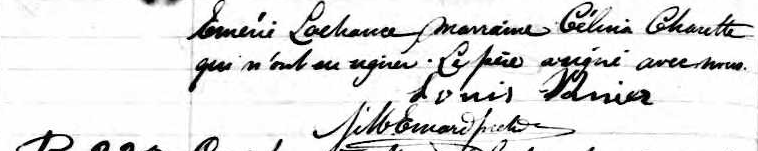 Eméri Lachance, marraine Célina Charette
qui n'ont su signer. Le père a signé avec nous.
Louis Vanier
J. M. Emard ptre